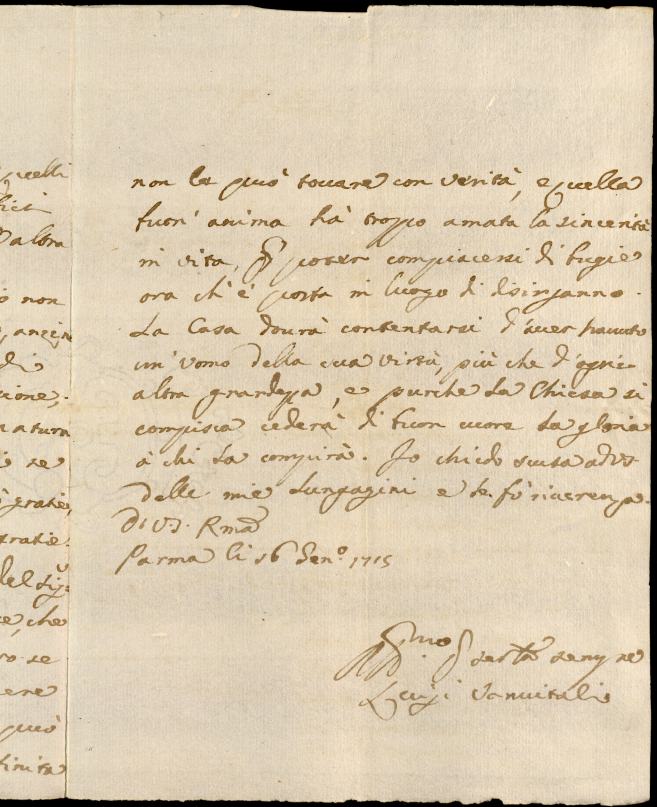 quelli
d'altra
non
anzi
di
zione;
natura
se
gratie,
gratie.
del Sig.
e, che
ro se
ere
può
finita
non la può toccare con verità, e quella
buon' anima hà troppo amata la sincerità
in vita, p poter compiacersi di bugie
ora ch'è posta in luogo di disinganno.
La Casa dovrà contentarsi d'aver havuto
un' Vomo della sua virtù, più che d'ogni
altra grandezza, e purche la Chiesa si
compisca cederà di buon cuore la gloria
à chi la compirà. Io chiedo scusa a V.S.
delle mie lungagini e le fò riverenza.
Di V.S. Rma
Parma li 16 Gen.o 1715
sempre
Luigi Sanvitali